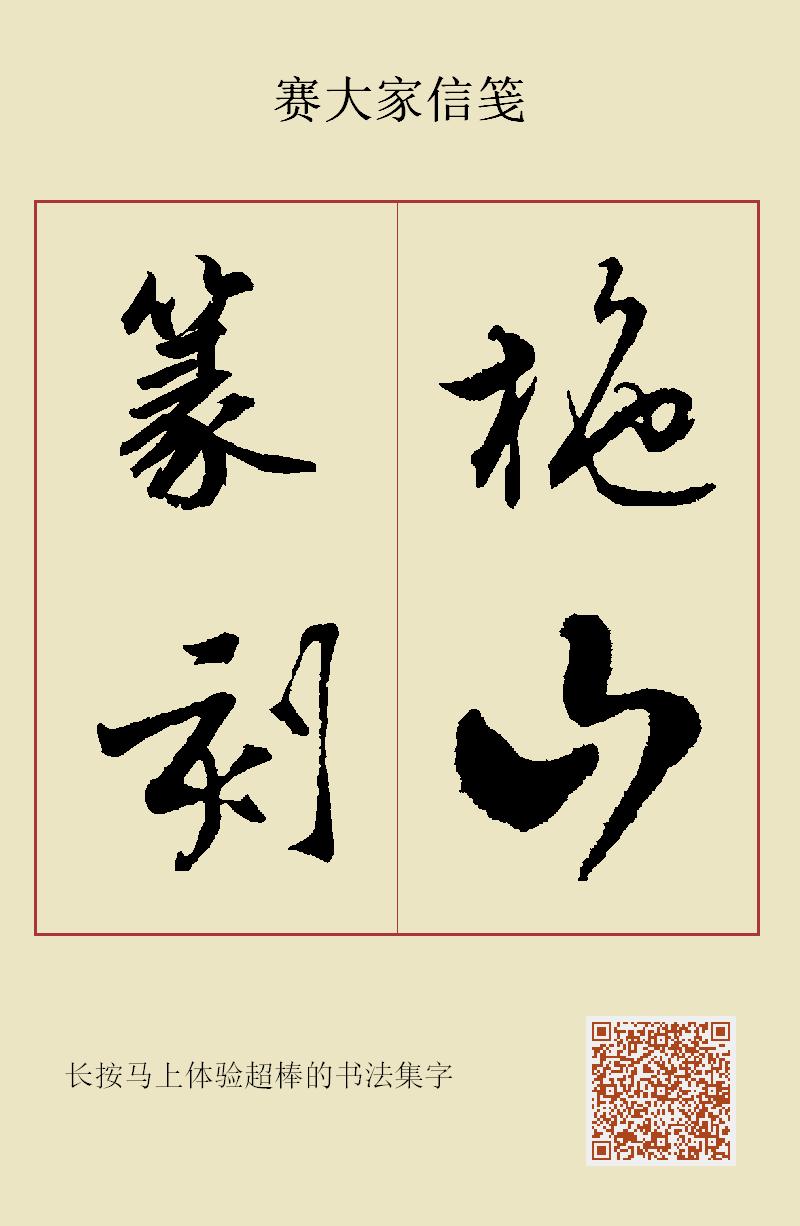 赛大家信笺
施山
篆刻
长按马上体验超棒的书法集字